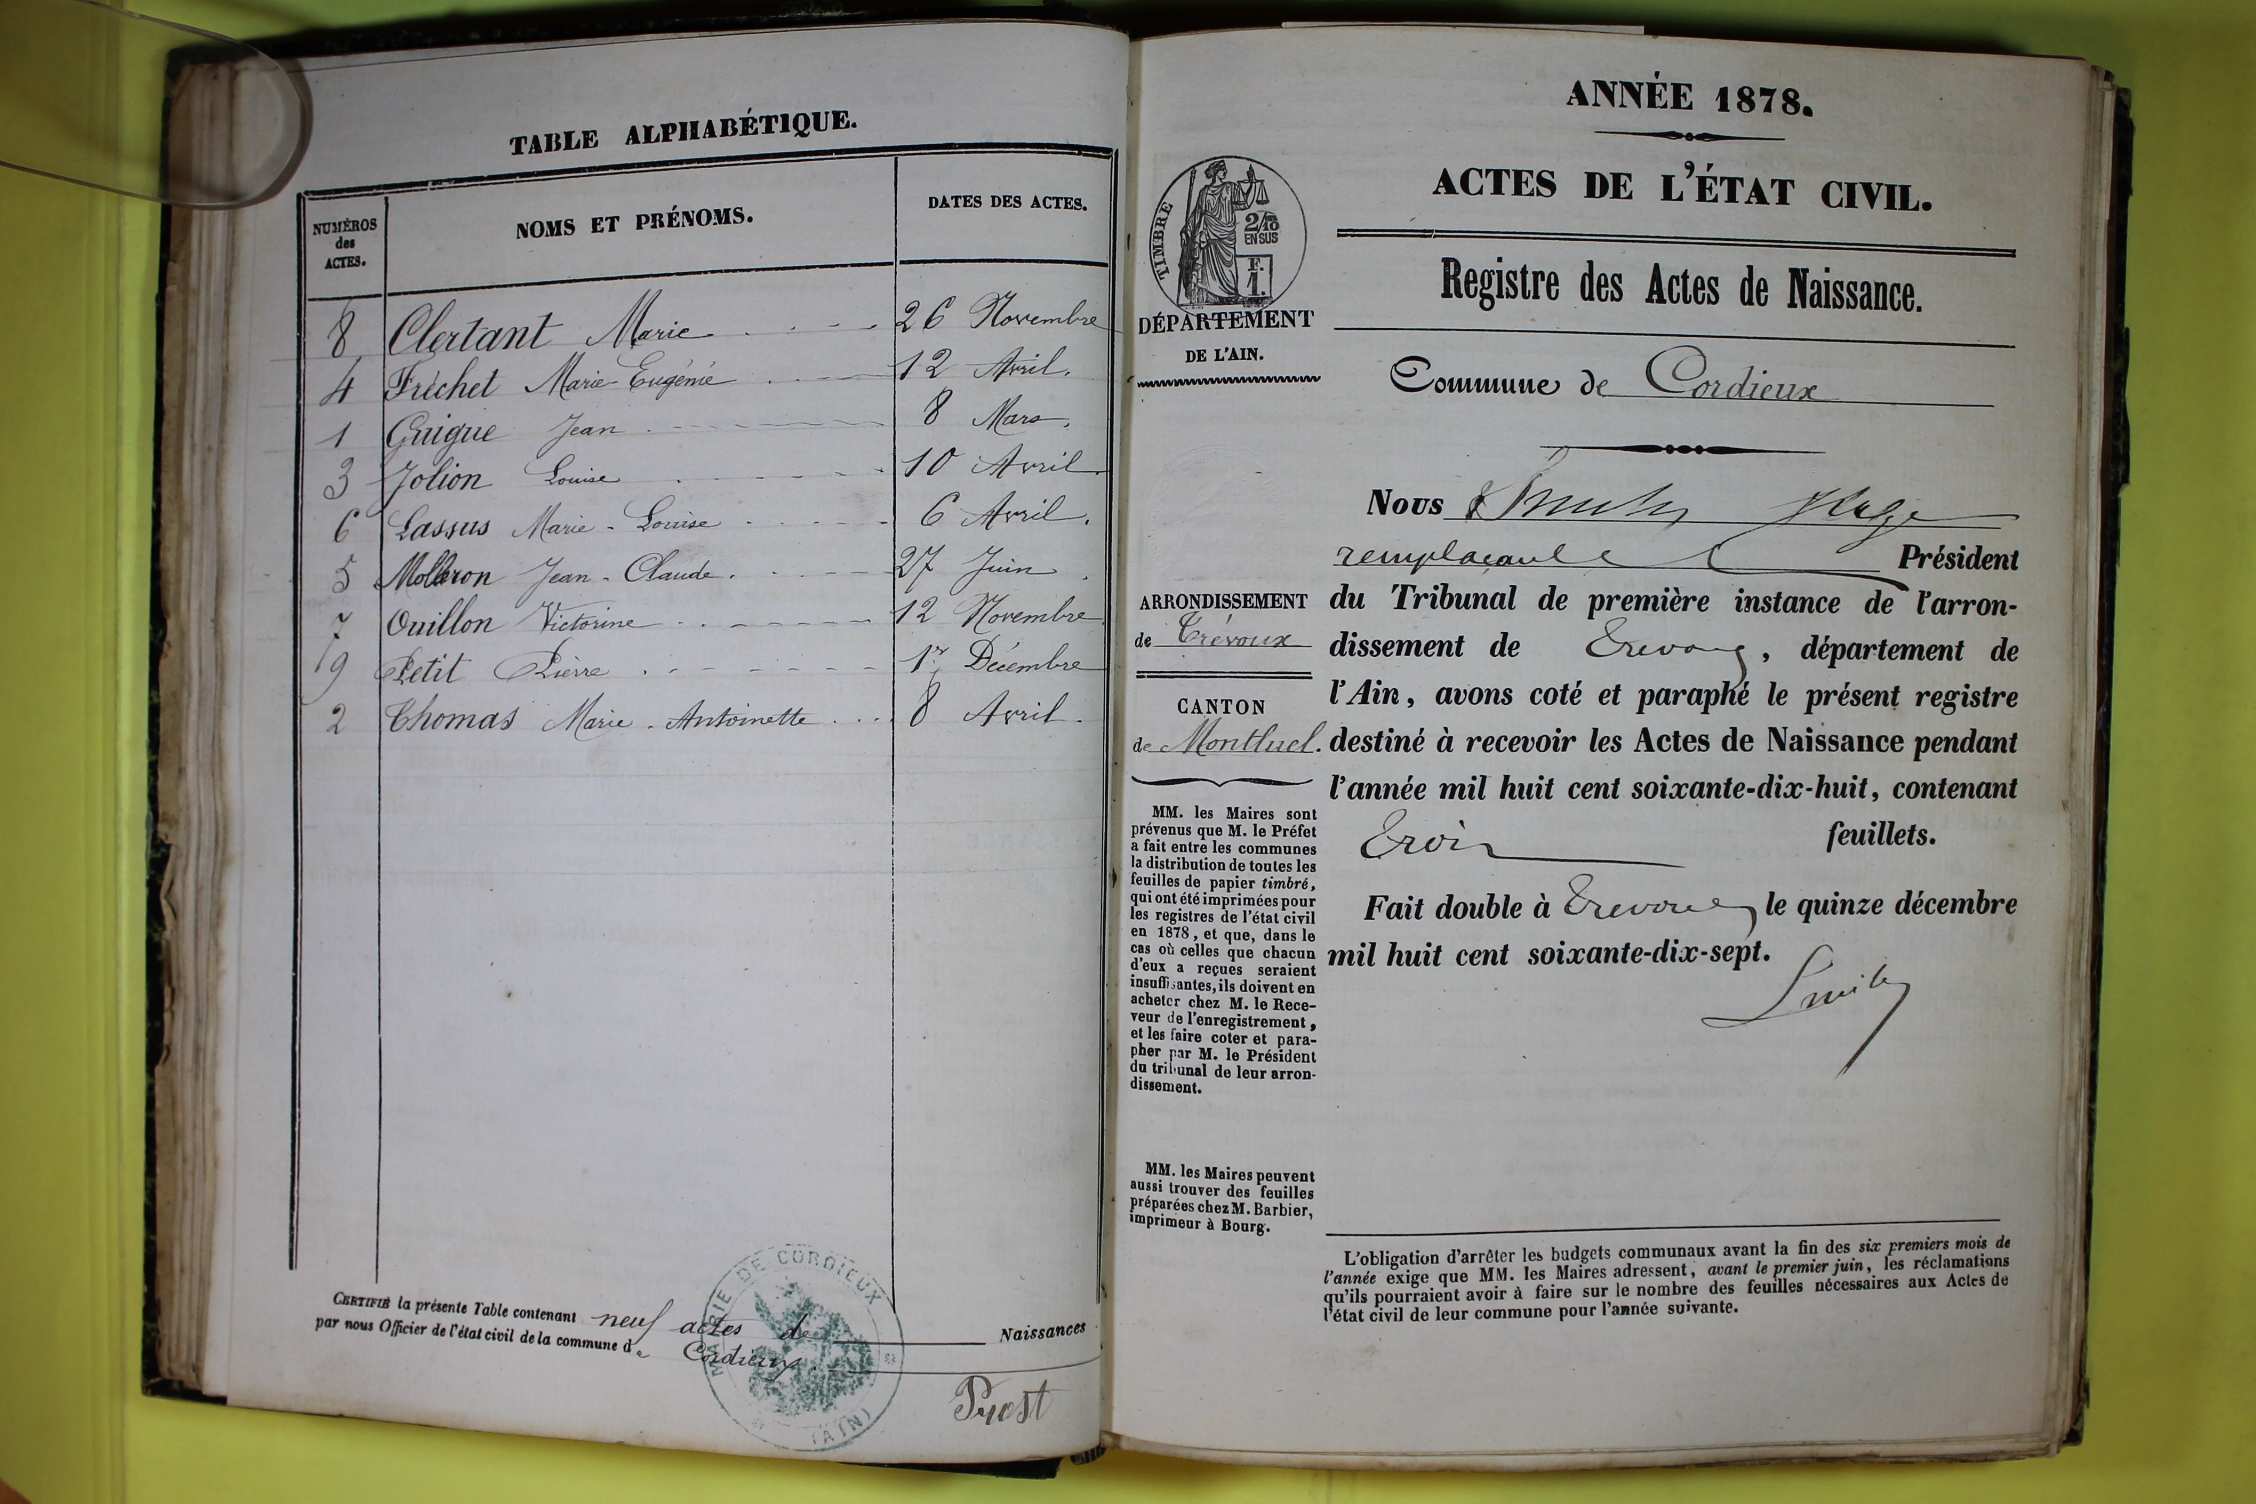 TABLE ALPHABÉTIQUE.
NUMÉROS des ACTES.
NOMS ET PRÉNOMS.
DATES DES ACTES.
8 Clertant Marie 26 Novembre
4 Fréchet Marie-Eugénie 12 Avril.
1 Guigue Jean 8 Mars.
3 Jolion Louise 10 Avril.
6 Lassus Marie-Louise 6 Avril.
5 Molleron Jean-Claude. 27 Juin.
7 Ouillon Victorine 12 Novembre
9 Petit Pierre 1er Décembre
2 Thomas Marie-Antoinette 8 Avril.
CERTIFIÉ la présente Table contenant neuf actes de Naissances
par nous Officier de l'état civil de la commune de Cordieux.
MAIRIE DE CORDIEUX
(AIN)
Prost
ANNÉE 1878.
ACTES DE L'ÉTAT CIVIL.
Registre des Actes de Naissance.
Commune de Cordieux
TIMBRE
2/10
EN SUS
F.
1.
DÉPARTEMENT
DE L'AIN.
ARRONDISSEMENT
de Trévoux
CANTON
de Montluel.
MM. les Maires sont
prévenus que M. le Préfet
a fait entre les communes
la distribution de toutes les
feuilles de papier timbré,
qui ont été imprimées pour
les registres de l'état civil
en 1878, et que, dans le
cas où celles que chacun
d'eux a reçues seraient
insuffisantes, ils doivent en
acheter chez M. le Rece-
veur de l'enregistrement,
et les faire coter et para-
pher par M. le Président
du tribunal de leur arron-
dissement.
MM. les Maires peuvent
aussi trouver des feuilles
préparées chez M. Barbier,
imprimeur à Bourg.
Nous
remplaçant le Président
du Tribunal de première instance de l'arron-
dissement de Trevoux, département de
l'Ain, avons coté et paraphé le présent registre
destiné à recevoir les Actes de Naissance pendant
l'année mil huit cent soixante-dix-huit, contenant
Trois feuillets.
Fait double à Trevoux le quinze décembre
mil huit cent soixante-dix-sept.
L'obligation d'arrêter les budgets communaux avant la fin des six premiers mois de
l'année exige que MM. les Maires adressent, avant le premier juin, les réclamations
qu'ils pourraient avoir à faire sur le nombre des feuilles nécessaires aux Actes de
l'état civil de leur commune pour l'année suivante.